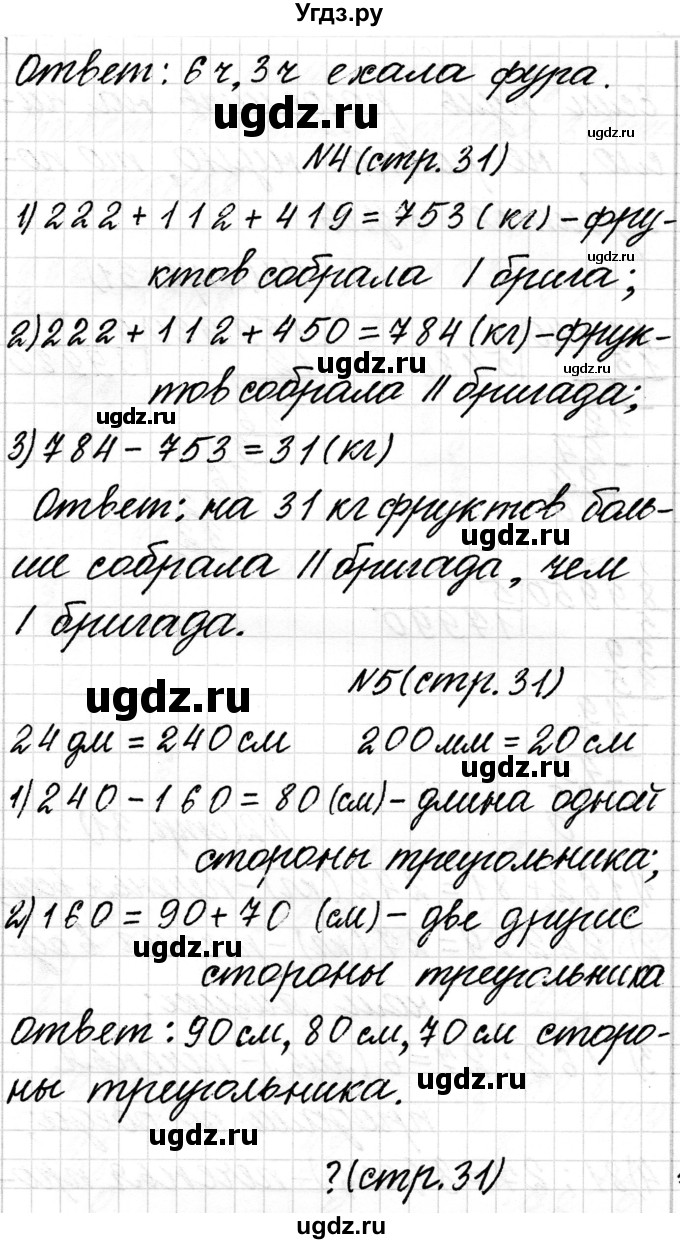 Угдз.ру
Ответ: 6 ч, 3 ч ехала фура.
ugdz.ru ugdz.ru
№4 (стр. 31)
ugdz.ru
1) 222 + 112 + 419 = 753 (кг) - фру-
ugdz.ru
ктов собрала I брига;
2) 222 + 112 + 450 = 784 (кг) - фрук-
ugdz.ru ugdz.ru
тов собрала II бригада;
ugdz.ru
3) 784 - 753 = 31 (кг)
Ответ: на 31 кг фруктов боль-
ugdz.ru
ше собрала II бригада, чем
I бригада.
№5 (стр. 31)
ugdz.ru
24 дм = 240 см 200 мм = 20 см
ugdz.ru
1) 240 - 160 = 80 (см) - длина одной
стороны треугольника;
2) 160 = 90 + 70 (см) - две другис
ugdz.ru
стороны треугольника
Ответ: 90 см, 80 см, 70 см сторо-
ны треугольника.
ugdz.ru
ugdz.ru
? (стр. 31)
ugdz.ru